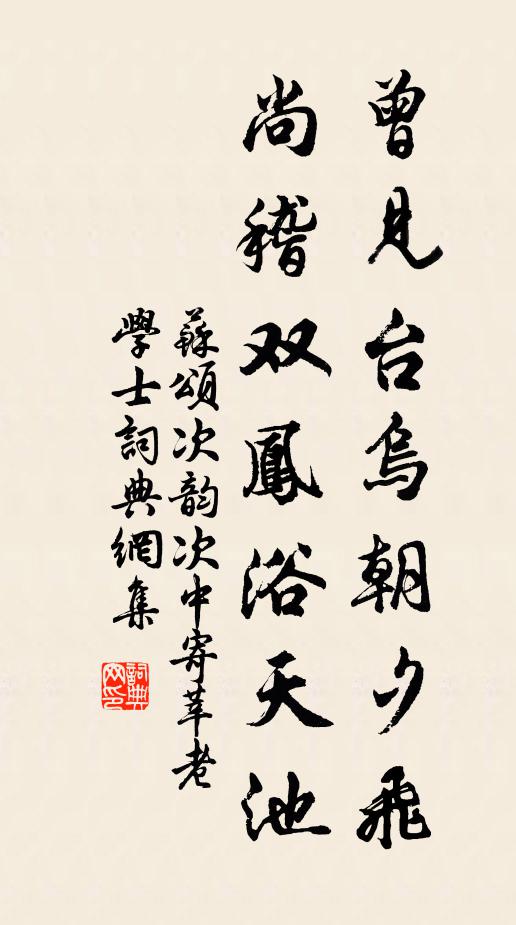 曾見台烏朝夕飛
尚稽双鳳浴天池
蘇頌次韵次中寄莘老
學士詞典網集
詞典
网印